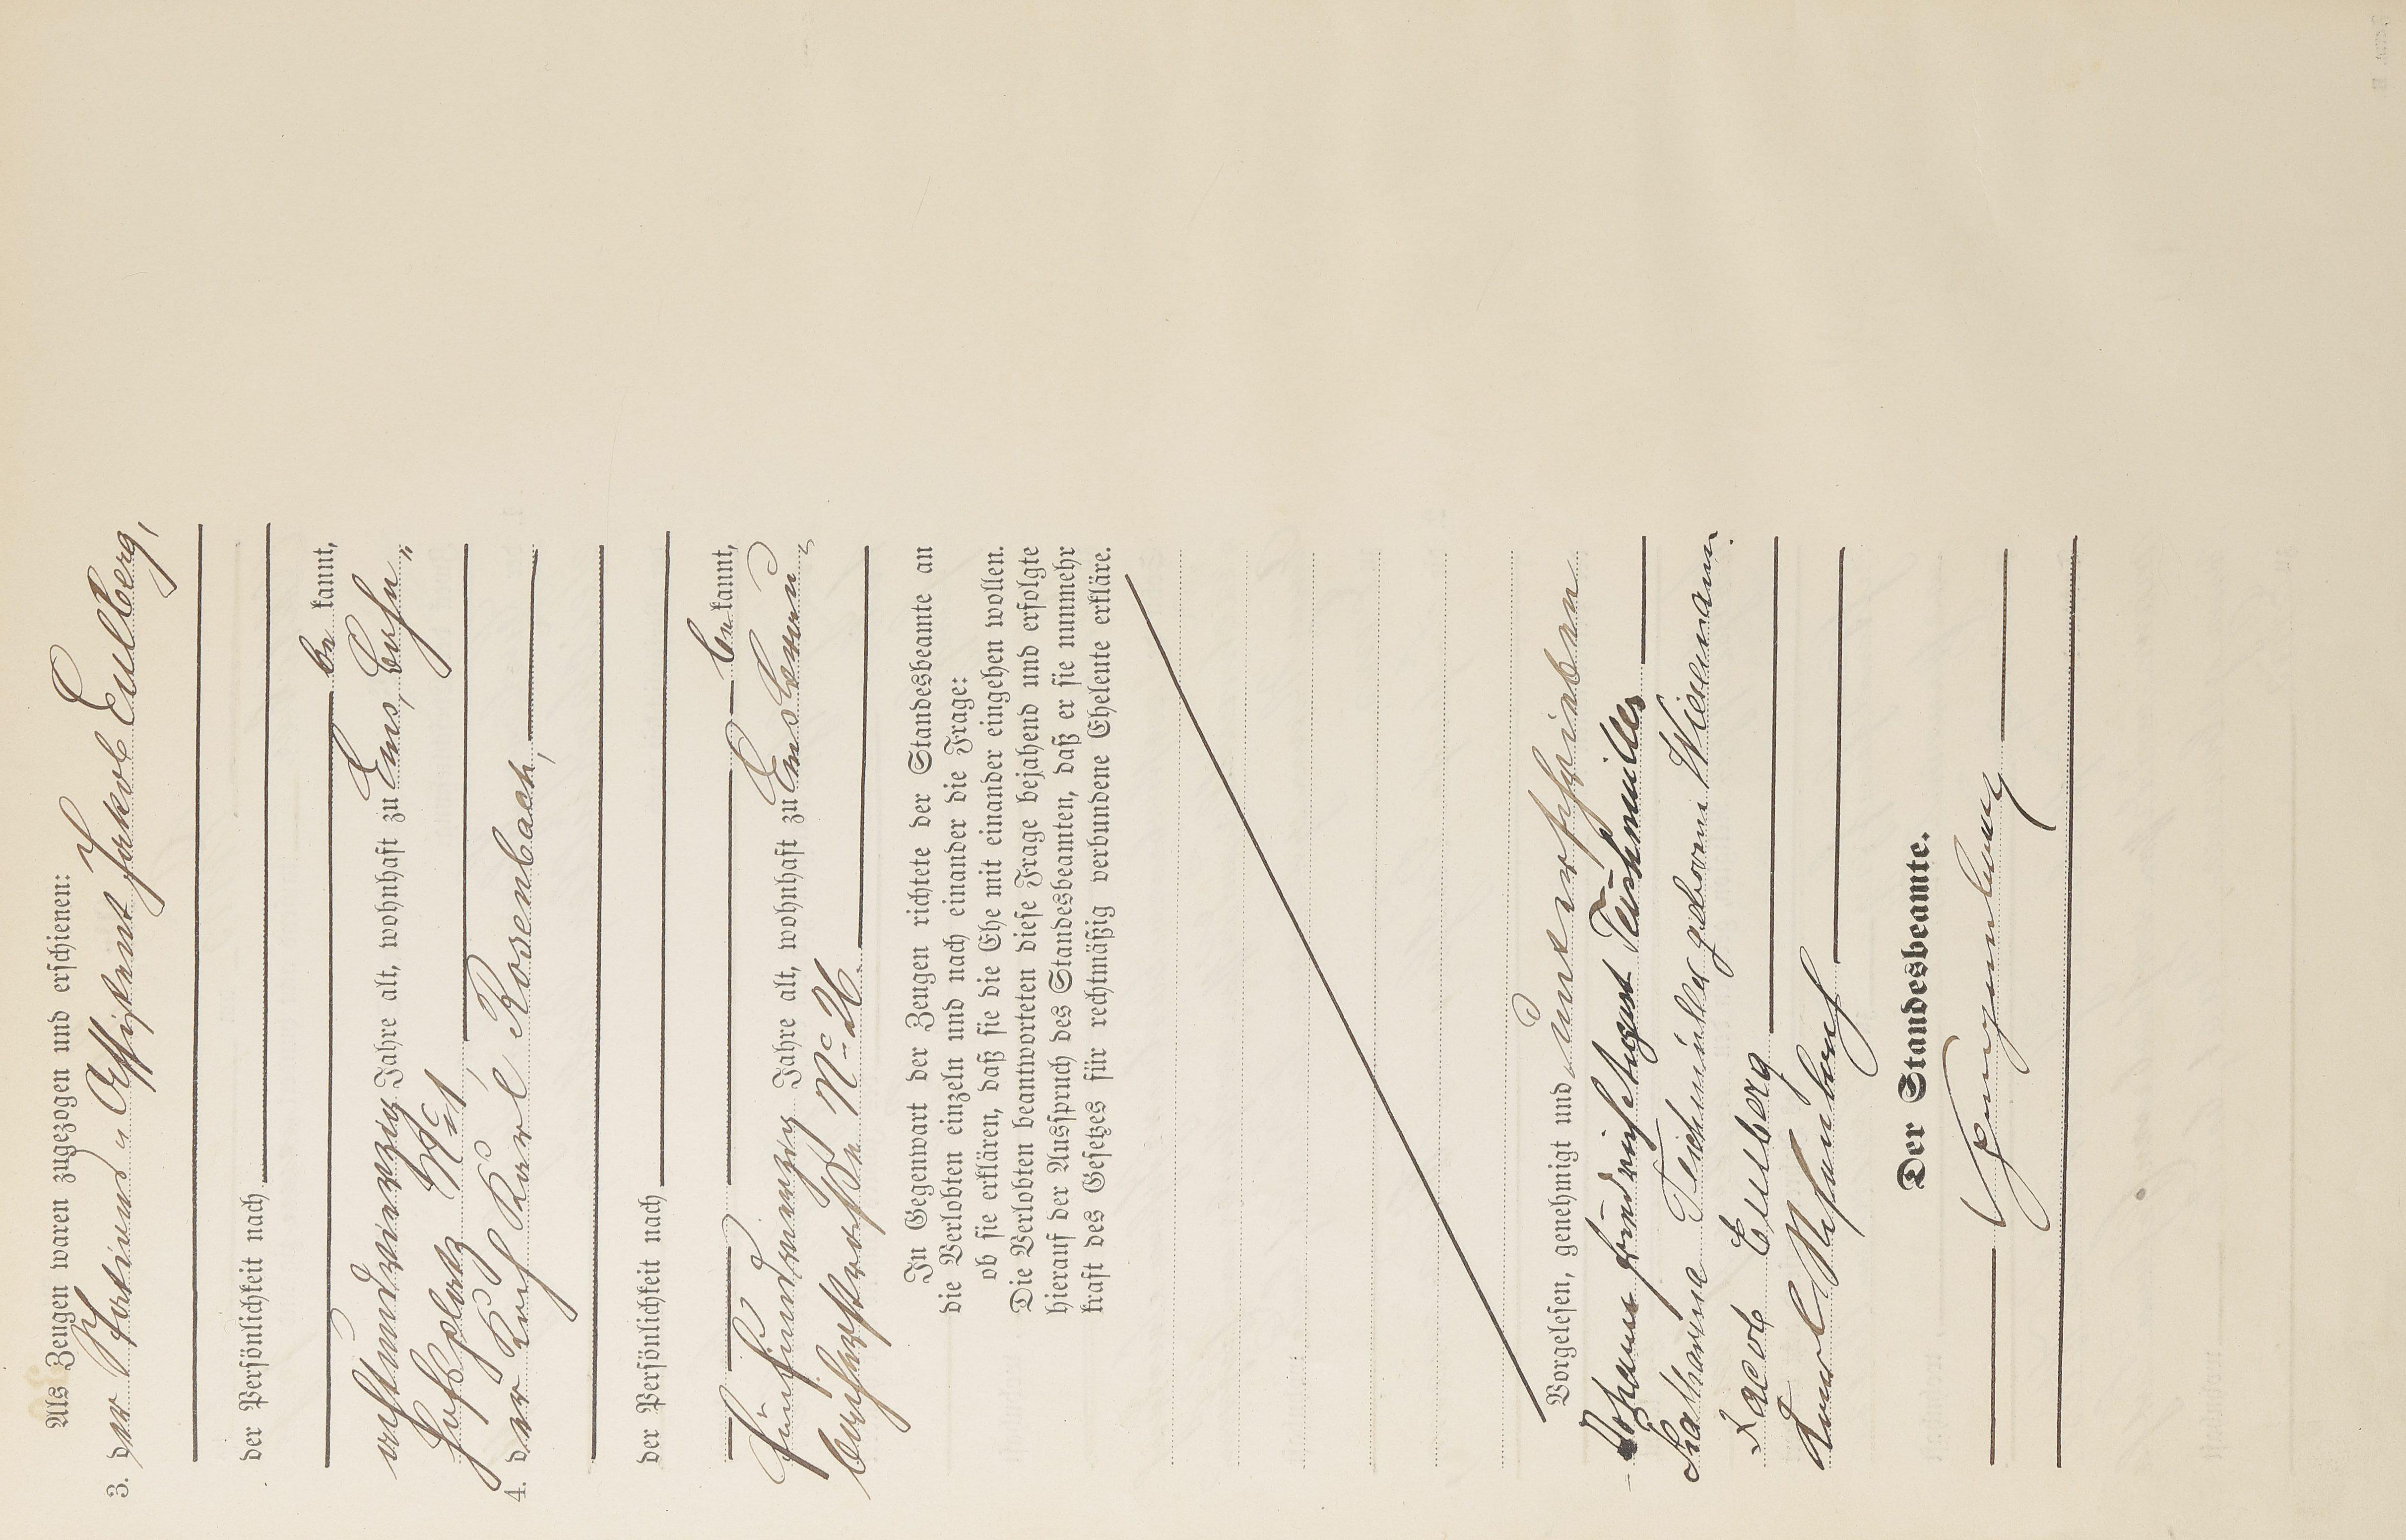 Als Zeugen waren zugezogen und erschienen:
3. der Assistent Jakob Eulberg,
der Persönlichkeit nach
be kannt,
achtundvierzig Jahre alt, wohnhaft zu Ems,
No 1
4. der Koch Karl Rosenbach,
der Persönlichkeit nach
be kannt,
fünfundzwanzig Jahre alt, wohnhaft zu Ems
No 26.
In Gegenwart der Zeugen richtete der Standesbeamte an
die Verlobten einzeln und nach einander die Frage:
ob sie erklären, daß sie die Ehe mit einander eingehen wollen.
Die Verlobten beantworteten diese Frage bejahend und erfolgte
hierauf der Ausspruch des Standesbeamten, daß er sie nunmehr
kraft des Gesetzes für rechtmäßig verbundene Eheleute erkläre.
Vorgelesen, genehmigt und unterschrieben
Johann Friedrich August Teichmüller
Katharina Teichmüller geborne Wiesemann.
Jacob Eulberg
Karl Rosenbach
Der Standesbeamte.